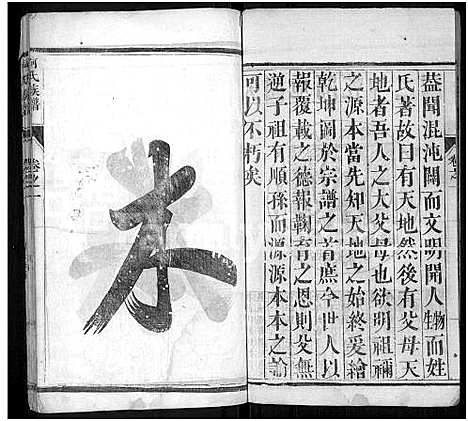 卷之一
葢聞混沌闢而文明開人物而姓
氏著故曰有天地然後有父母天
地者吾人之大父母也欲明祖禰
之源本當先知天地之始終爰繪
乾坤圖於宗譜之首庶令世人以
報覆載之德報鞠育之恩則父無
逆子祖有順孫而源源本本之論
可以不朽矣
本
何氏族譜
卷之一